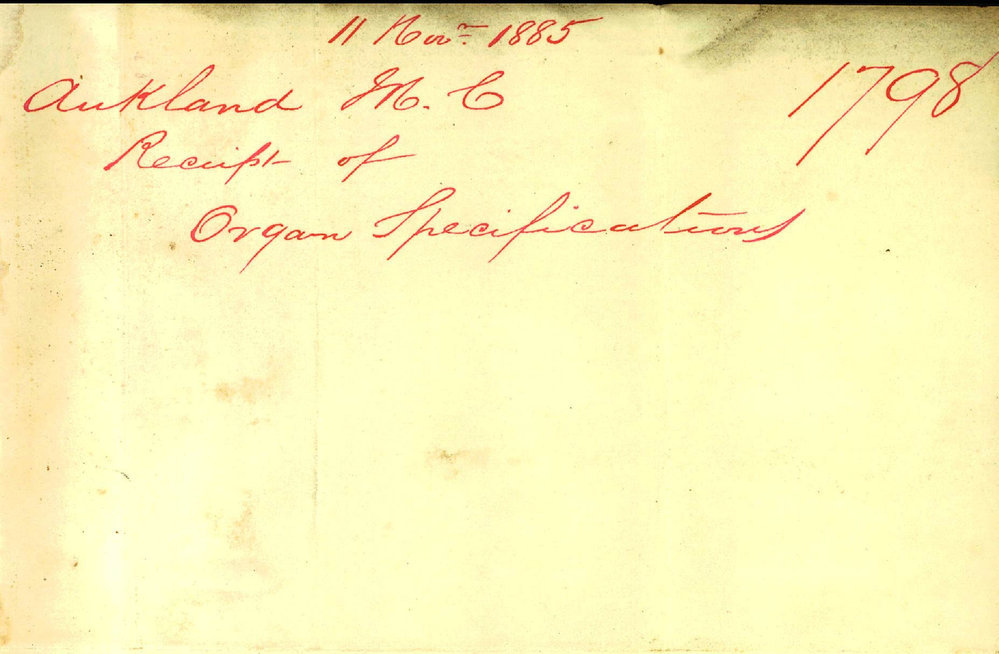 11 Novr 1885
Aukland M. C 1798
Receipt of
Organ Specifications